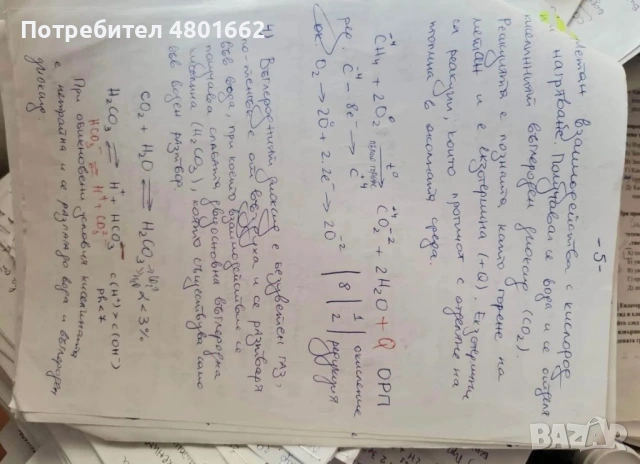 Потребител 4801662
-5-
Метан взаимодейства с кислород
при нагряване. Получава се вода и се отделя
киселинният въглероден диоксид (CO2).
Реакцията е позната като горене на
метан и е екзотермична (+Q). Екзотермични
са реакции, които протичат с отделяне на
топлина в околната среда.
-4 0 t° +4 -2
CH4 + 2O2 → CO2 + 2H2O + Q ОРП
пълно горене
рег. C -4 - 8e- → C +4 | 1 окисление
ок. O2 → 2O 0 + 2.2e- → 2O -2 | 8 | 2 | редукция
4) Въглеродният диоксид е безцветен газ,
по-тежък от въздуха и се разтваря
във вода, при което взаимодействие се
получава слабата двуосновна въглеродна
киселина (H2CO3), която съществува само
във воден разтвор.
CO2 + H2O ⇌ H2CO3 α < 3%
H2CO3 ⇌ H+ + HCO3- c(H+) > c(OH-)
HCO3- ⇌ H+ + CO3 2- pH < 7
При обикновени условия киселината
е нетрайна и се разлага до вода и въглероден
диоксид.
BAZAR